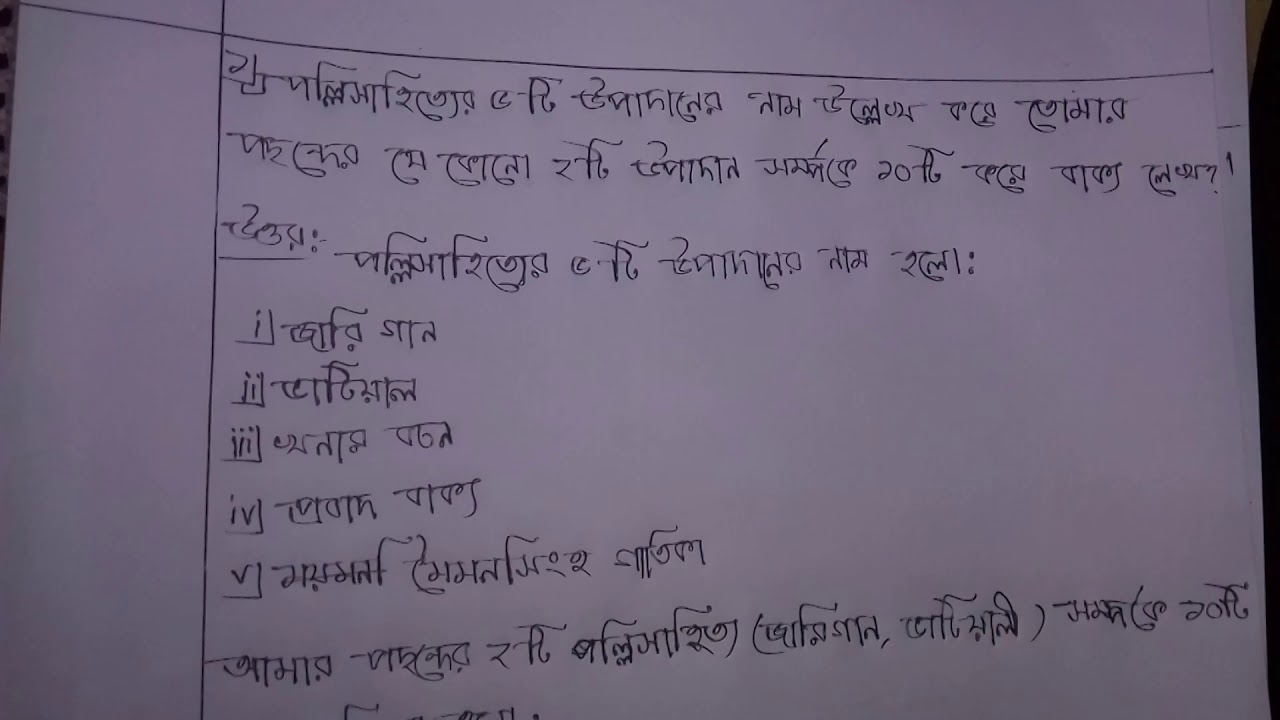 ২) পল্লিসাহিত্যের ৫টি উপাদানের নাম উল্লেখ করে তোমার
পছন্দের যে কোনো ২টি উপাদান সম্পর্কে ১০টি করে বাক্য লেখ?।
উত্তর: পল্লিসাহিত্যের ৫টি উপাদানের নাম হলো:
i) জারি গান
ii) ভাটিয়াল
iii) খনার বচন
iv) প্রবাদ বাক্য
v) ময়মনসিং মৈমনসিংহ গীতিকা
আমার পছন্দের ২টি পল্লিসাহিত্য (জারিগান, ভাটিয়ালী) সম্পর্কে ১০টি